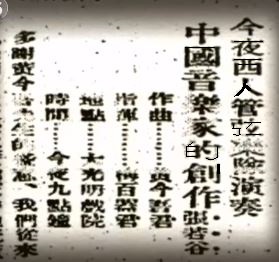 今夜西人管弦隊演奏
中國音樂家的創作
張若谷
作曲⋯⋯黃今吾君
指揮⋯⋯梅百器君
地點⋯⋯大光明戲院
時間⋯⋯今夜九點鐘
多謝黃今 我們從來